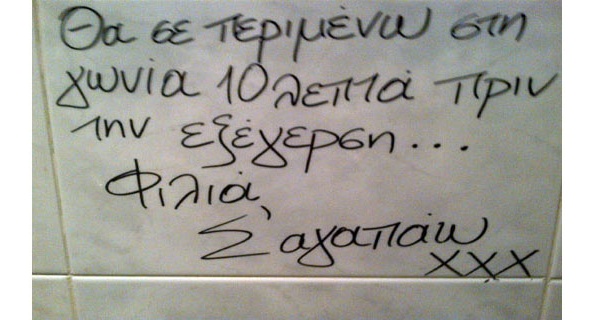 Θα σε περιμένω στη
γωνία 10 λεπτά πριν
την εξέγερση...
Φιλιά,
Σ'αγαπάω
xxx